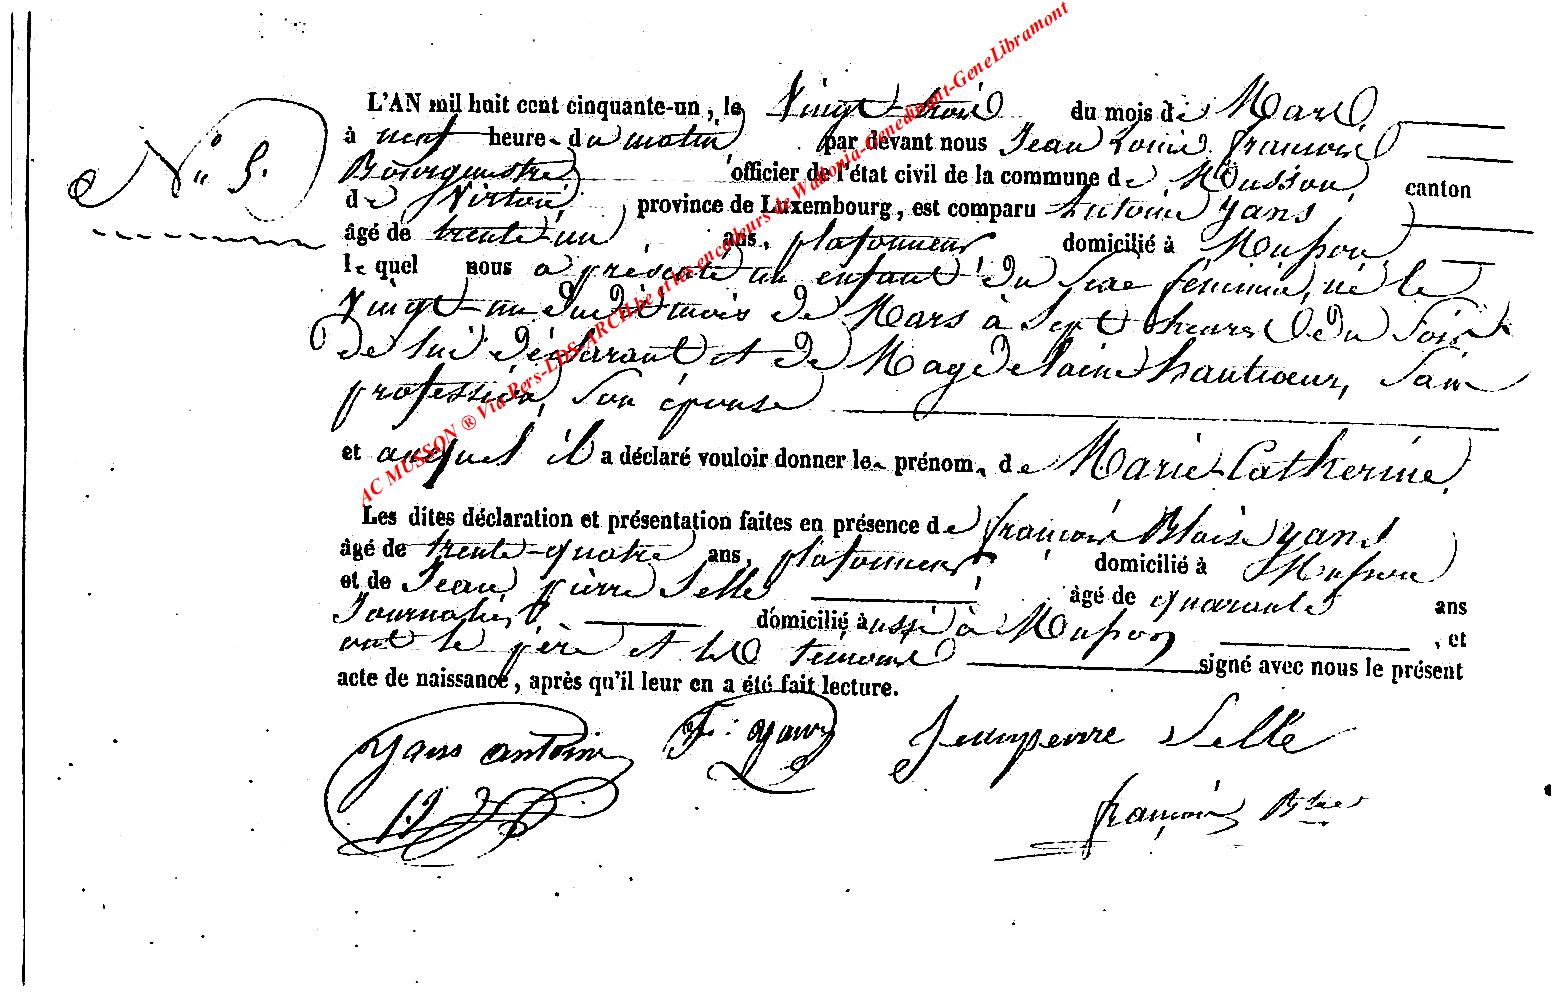 N° 5.
L'AN mil huit cent cinquante-un, le Vingt-trois du mois de Mars
à neuf heures du matin par devant nous Jean Louis françois
Bourgmestre officier de l'état civil de la commune de Musson, canton
de Virton, province de Luxembourg, est comparu Antoine yans,
âgé de trente-un ans, plafonneur domicilié à Musson,
lequel nous a présenté un enfant du sexe féminin, né le
Vingt-un du dit mois de Mars à sept heures du soir
de lui déclarant et de Magdelaine hautcœur, sans
profession, son épouse
et auquel il a déclaré vouloir donner les prénoms de Marie-Catherine.
Les dites déclaration et présentation faites en présence de françois Blaise yans
âgé de trente-quatre ans, plafonneur domicilié à Musson
et de Jean pierre Sellé âgé de quarante ans
Journalier domicilié aussi à Musson, et
ont le père et les témoins signé avec nous le présent
acte de naissance, après qu'il leur en a été fait lecture.
yans antoine F: yans Jeanpierre Sellé
françois
AC MUSSON ® Via Pers-LDS-ARCH.be et les encodeurs de Wallonia-Genedinant-GeneLibramont